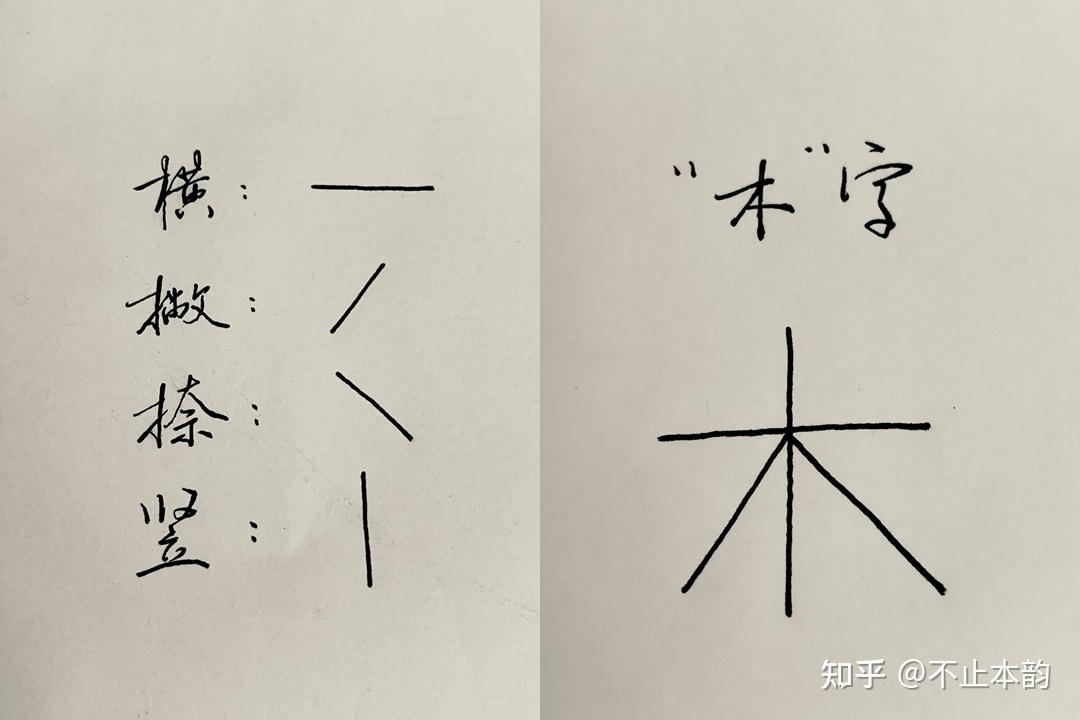 横：一
撇：
捺：
竖：
“木”字
木
知乎 @不止本韵